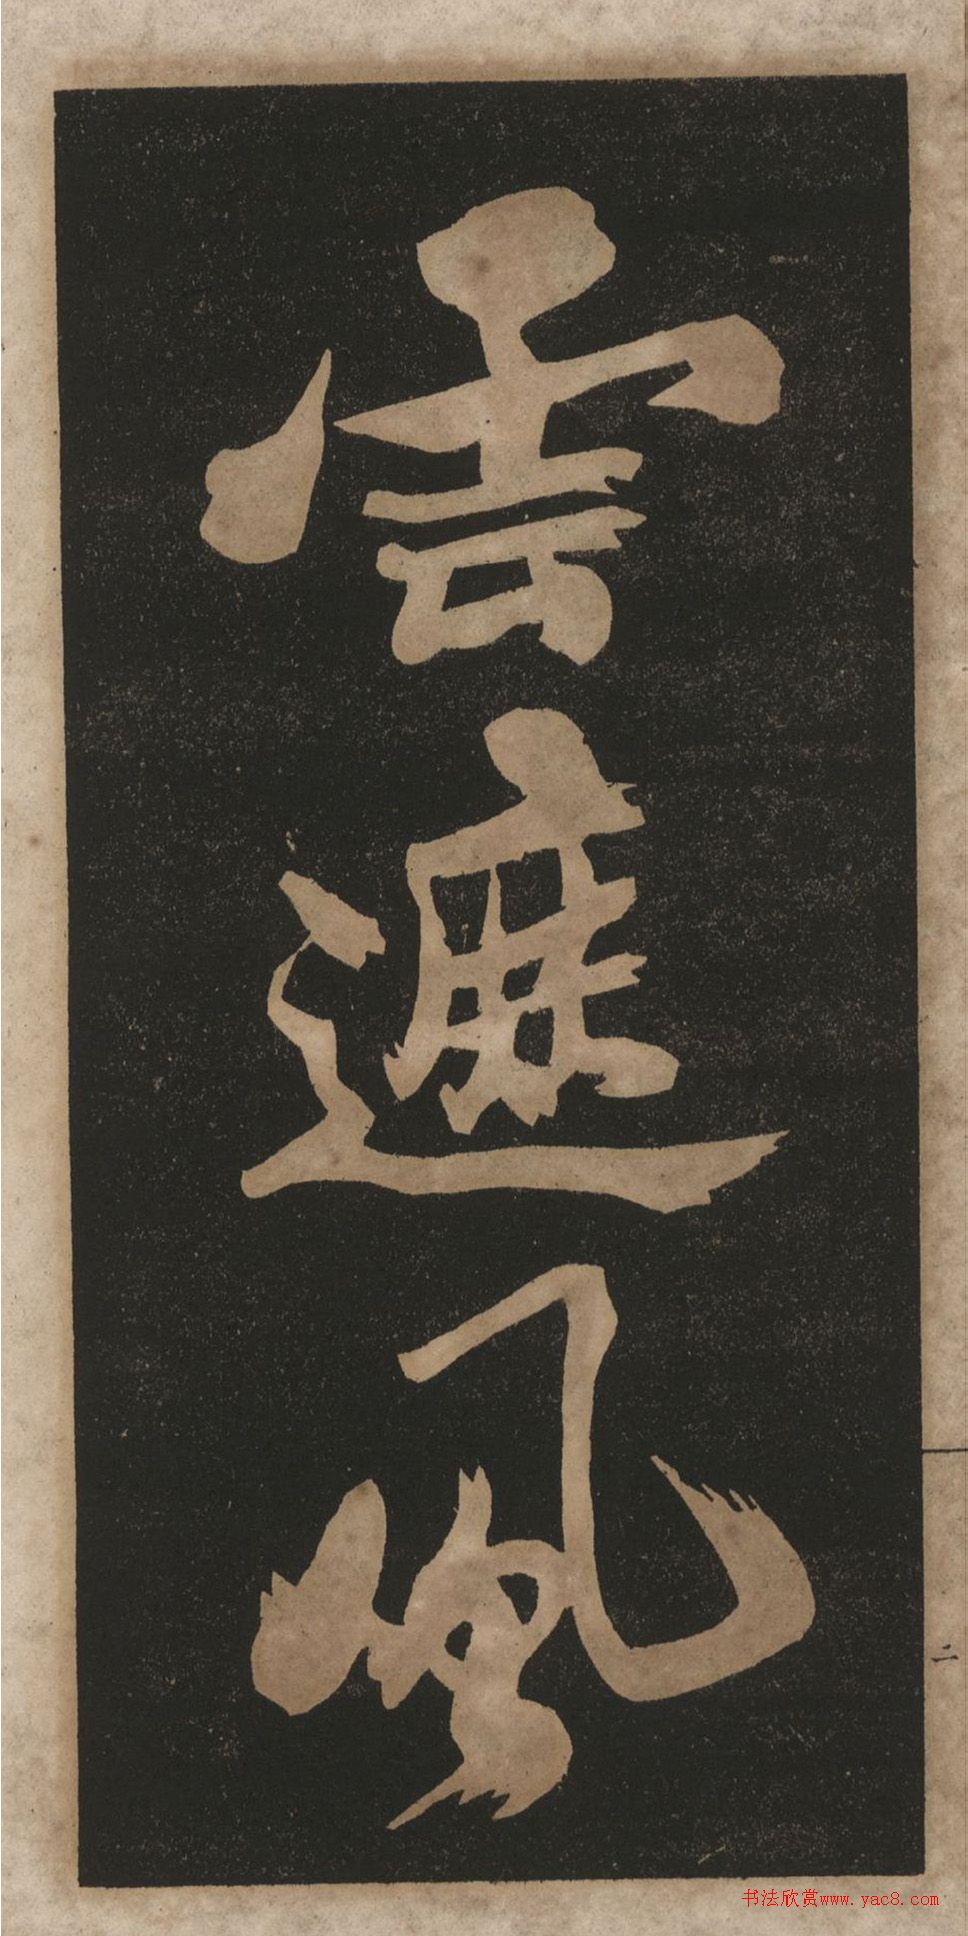 雲遮風
二
书法欣赏www.yac8.com